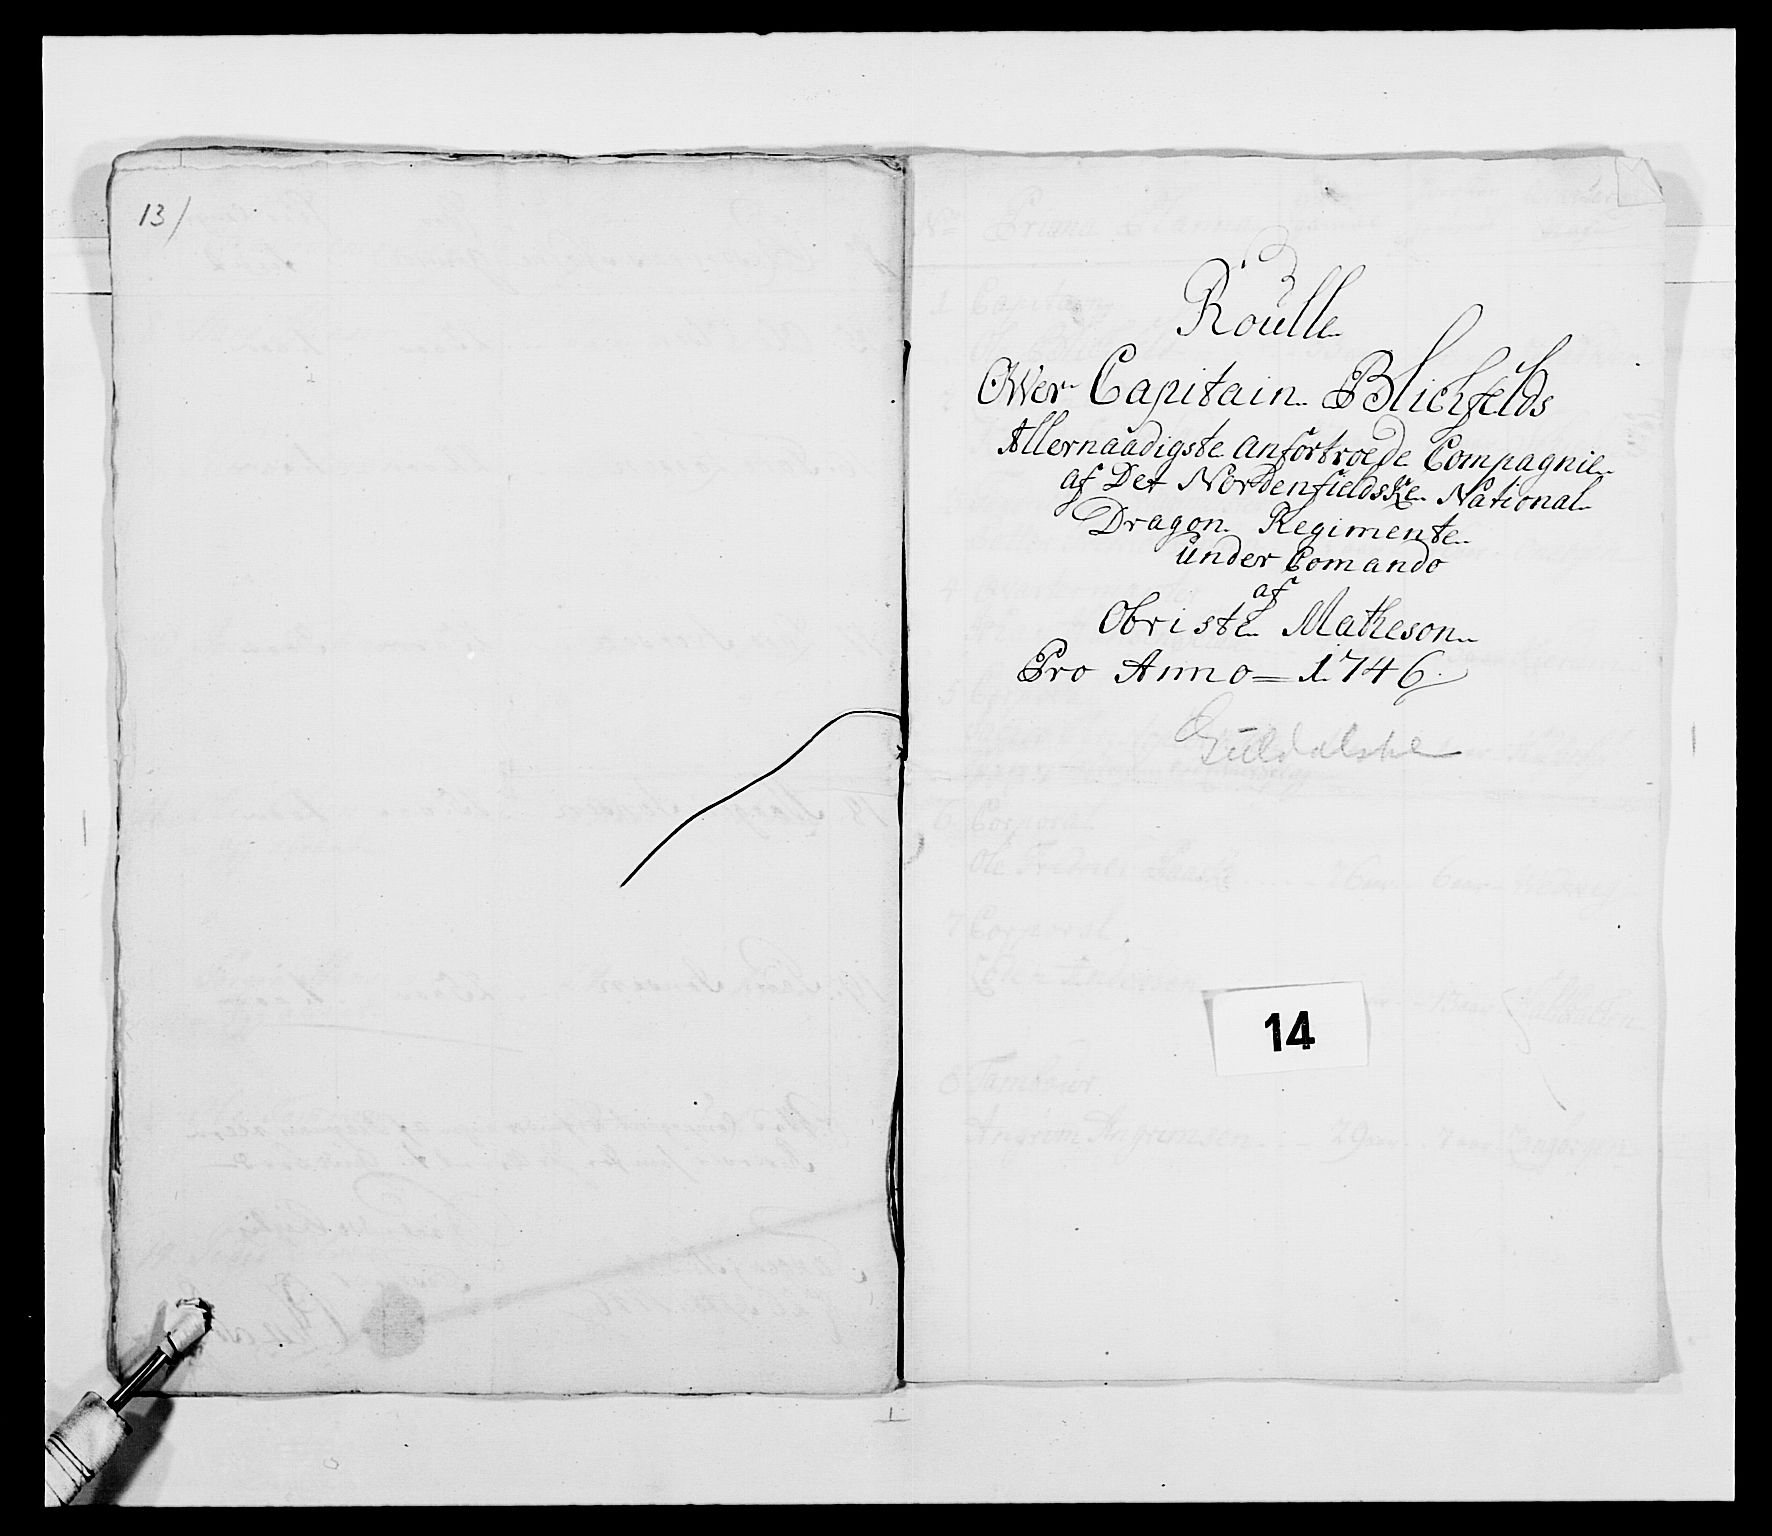 13/
Roulle
Ower Capitain Blichfelds
Allernaadigste anfortroede Compagnie
af Det Nordenfieldske National
Dragon Regimente
under Comando
af
Obriste Matheson
Pro Anno = 1746.
Guldalske
14